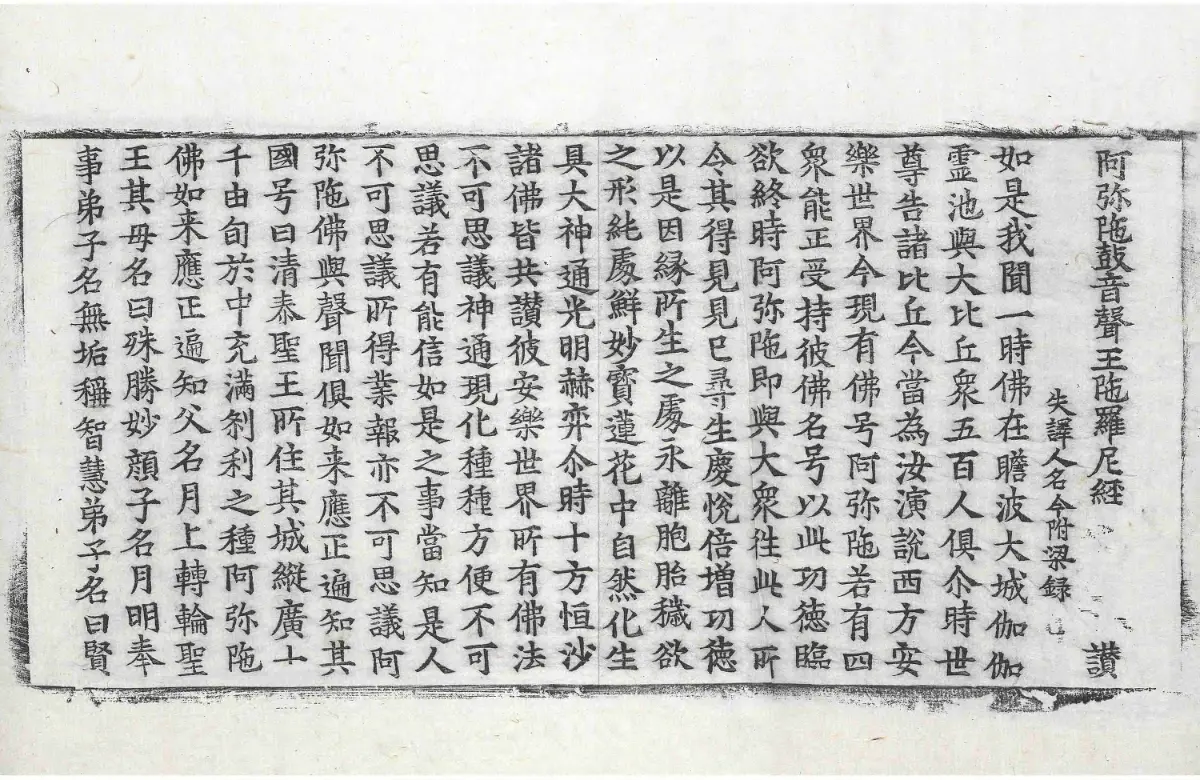 阿弥陁鼓音聲王陁羅尼經 讃
失譯人名今附梁録
如是我聞一時佛在瞻波大城伽伽
霊池與大比丘衆五百人俱尒時世
尊告諸比丘今當為汝演說西方安
樂世界今現有佛号阿弥陁若有四
衆能正受持彼佛名号以此功德臨
欲終時阿弥陁即與大衆往此人所
令其得見見已尋生慶恱倍增功德
以是因縁所生之處永離胞胎穢欲
之形純處鮮妙寳蓮花中自然化生
具大神通光明赫弈尒時十方恒沙
諸佛皆共讃彼安樂世界所有佛法
不可思議神通現化種種方便不可
思議若有能信如是之事當知是人
不可思議所得業報亦不可思議阿
弥陁佛與聲聞俱如来應正遍知其
國号曰清泰聖王所住其城縱廣十
千由旬於中充滿刹利之種阿弥陁
佛如来應正遍知父名月上轉輪聖
王其母名曰殊勝妙顔子名月明奉
事弟子名無垢稱智慧弟子名曰賢